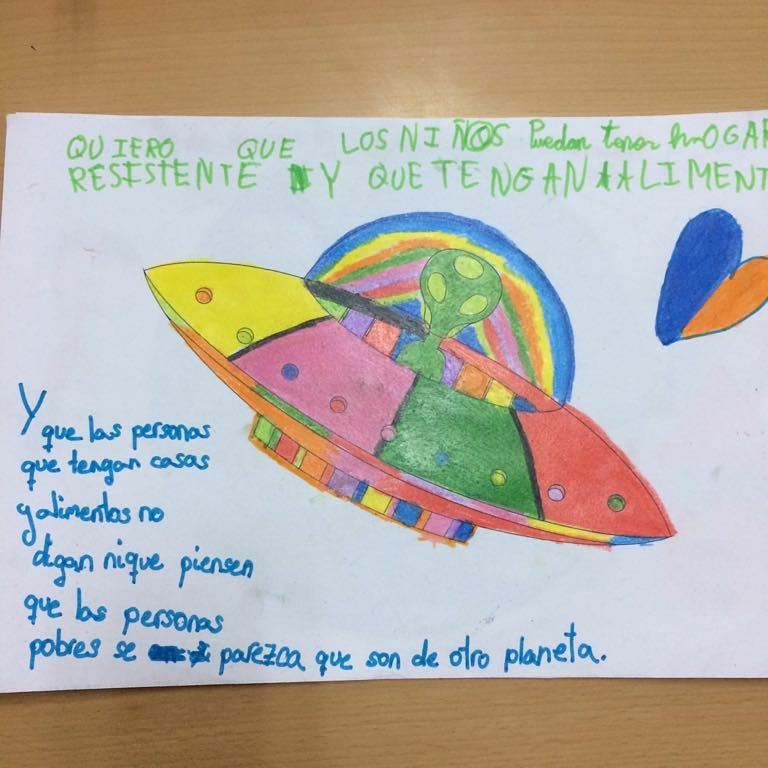 QUIERO QUE LOS NIÑOS Puedan tener hOGAR
RESISTENTE Y QUE TENGAN ALIMENT
Y que las personas
que tengan casas
y alimentos no
digan ni que piensen
que las personas
pobres se parezca que son de otro planeta.